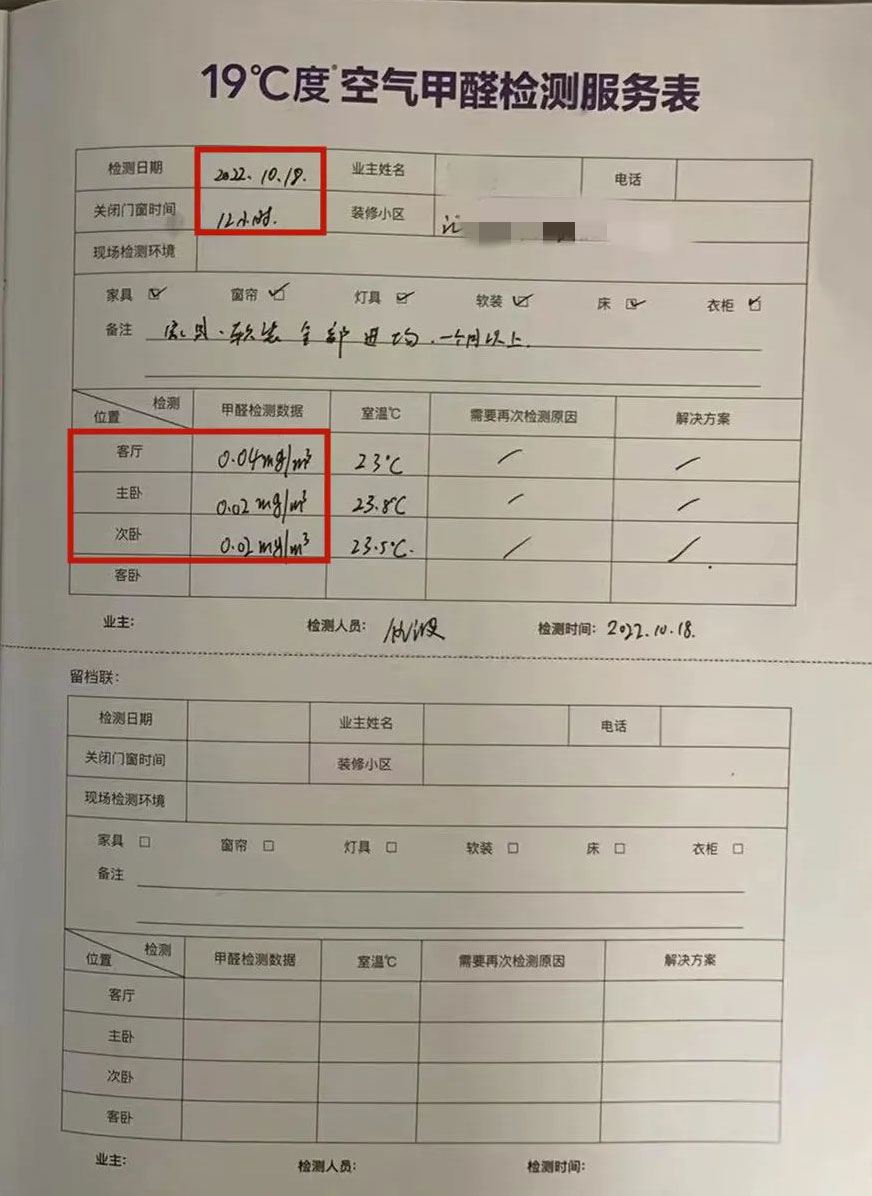 19℃度°空气甲醛检测服务表
检测日期 2022.10.18. 业主姓名 电话
关闭门窗时间 12小时. 装修小区
现场检测环境
家具 窗帘 灯具 软装 床 衣柜
备注 家具.软装全部进场.一个月以上.
检测 位置 甲醛检测数据 室温℃ 需要再次检测原因 解决方案
客厅 0.04mg/m³ 23℃ / /
主卧 0.02mg/m³ 23.8℃ / /
次卧 0.02mg/m³ 23.5℃. / /
客卧
业主: 检测人员: 检测时间: 2022.10.18.
留档联:
检测日期 业主姓名 电话
关闭门窗时间 装修小区
现场检测环境
家具 □ 窗帘 □ 灯具 □ 软装 □ 床 □ 衣柜 □
备注
检测 位置 甲醛检测数据 室温℃ 需要再次检测原因 解决方案
客厅
主卧
次卧
客卧
业主: 检测人员: 检测时间: